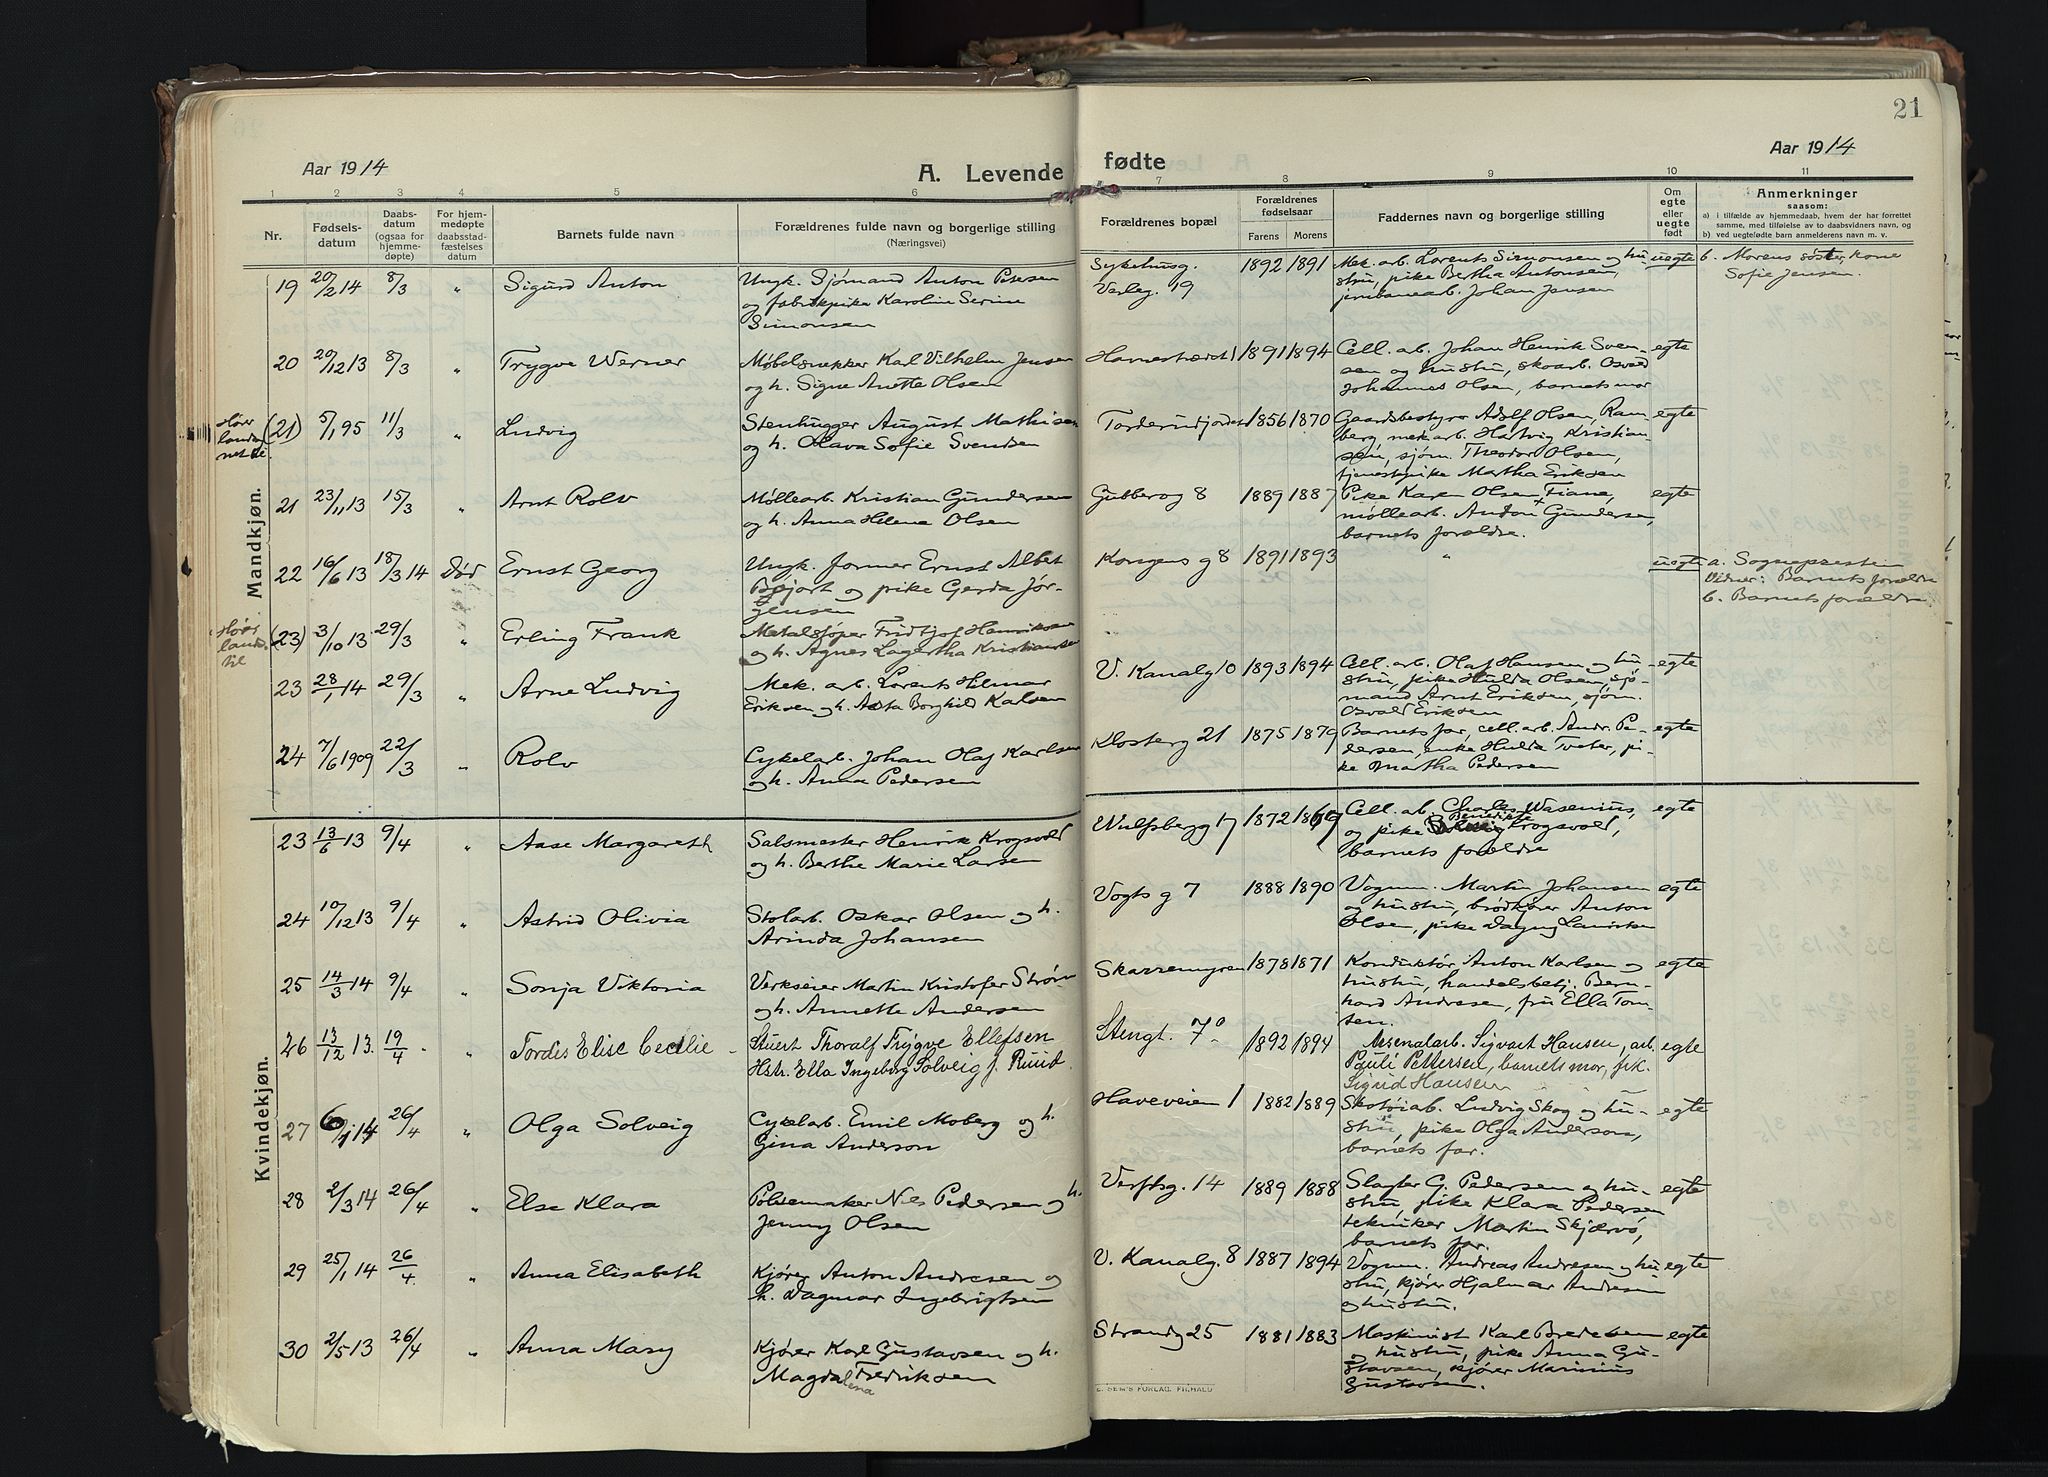 21
Aar 1914
A. Levende fødte
Aar 1914
1 2 3 4 5 6 7 8 9 10 11
Nr.
Fødsels-
datum
Daabs-
datum
(ogsaa for
hjemme-
døpte)
For hjem-
medøpte
daabsstad-
fæstelses
datum
Barnets fulde navn
Forældrenes fulde navn og borgerlige stilling
(Næringsvei)
Forældrenes bopæl
Forældrenes
fødselsaar
Farens Morens
Faddernes navn og borgerlige stilling
Om
egte
eller
uegte
født
Anmerkninger
saasom:
a) i tilfælde av hjemmedaab, hvem der har forrettet
samme, med tilføielse av to daabsvidners navn, og
b) ved uegtefødte barn anmelderens navn m. v.
Mandkjøn.
19 20/2 14 8/3 " Sigurd Anton
Ungk. Sjømand Anton Petersen
og fabrikpike Karoline Serine
Simonsen
Sykehusg.
Varleg. 19
1892 1891
Mek. arb. Lorents Simonsen og hu
stru, pike Bertha Antonsen,
jernbanearb. Johan Jensen
uegte
b. Morens søster, kone
Sofie Jensen.
20 20/12 13 8/3 " Trygve Werner
Møbelsnekker Karl Vilhelm Jensen
og h. Signe Anette Olsen
Havnestrædet 1 1891 1894
Cell. arb. Johan Henrik Sven-
sen og hustru, skoarb. Osvald
Johannes Olsen, barnets mor
egte
(21) 5/1 95 11/3 " Ludvig
Stenhugger August Mathisen
og h. Olava Sofie Svendsen
1856 1870
Gaardsbestyrer Adolf Olsen, Ram
berg, mek arb. Hartvig Kristian
sen, sjøm. Theodor Olsen,
tjenestepike Martha Eriksen
egte
21 23/11 13 15/3 " Arnt Rolv
Møllearb. Kristian Gundersen
og h. Anna Helene Olsen
Gubberog 8 1889 1887
Pike Karen Olsen Fiane,
møllearb. Anton Gundersen,
barnets forældre.
egte
22 16/6 13 18/3 14 Død Ernst Georg
Ungk. former Ernst Albet
og pike Gerda Jør-
gensen
Kongens g 8 1891 1893 "
uegte
a. Sognepresten
Vidner: Barnets forældre
b. Barnets forældre
(23) 3/10 13 29/3 " Erling Frank
Metalstøper Fridtjof Henriksen
og h. Agnes Lagertha Kristiansen
23 28/1 14 29/3 " Arne Ludvig
Mek. arb. Lorents Hilmar
Eriksen og h. Asta Borghild Karlsen
V. Kanalg 10 1893 1894
Cell. arb. Olaf Hansen og hu
stru, pike Hulda Olsen, sjø-
mand Arnt Eriksen, sjøm.
Osvald Eriksen
egte
24 7/6 1909 22/3 " Rolv
Cykelarb. Johan Olaf Karlsen
og h. Anna Pedersen
Klosterg 21 1875 1879
Barnets far, cell. arb. Andr. Pe-
dersen, enke Hulda Tveter, pi-
ke Martha Pedersen
egte
Kvindekjøn.
23 13/6 13 9/4 " Aase Margareth
Salsmester Henrik Krogsvold
og h. Berthe Marie Larsen
Wulfsbergg 17 1872 1869
Cell. arb. Charles Wasenius,
og pike Benedikte Krogsvold,
barnets forældre
egte
24 10/12 13 9/4 " Astrid Olivia
Stolarb. Oskar Olsen og h.
Arinda Johansen
Vogts g 7 1888 1890
Vognm. Martin Johansen
og hustru, brødkjører Anton
Olsen, pike Dagny Lauritsen
egte
25 14/3 14 9/4 " Sonja Viktoria
Verkseier Martin Kristofer Strøm
og h. Annette Andersen
Skarremyren 1878 1871
Konduktør Anton Karlsen og
hustru, handelsbetj. Bern-
hard Andresen, fru Ella Tom-
sen.
egte
26 13/12 13. 19/4 " Tordis Elise Cecilie
Stuert Thoralf Trygve Ellefsen
Hstr. Ella Ingeborg Solveig f. Ruud.
Stengt. 7 1892 1894
Arsenalarb. Sigvart Hansen, arb.
Pauli Pettersen, barnets mor, pk.
Sigrid Hansen
egte
27 6/1 14 26/4 " Olga Solveig
Cykelarb. Emil Moberg og h.
Gina Anderson
Haveveien 1 1882 1889
Skotøiab. Ludvig Skog og hu-
stru, pike Olga Anderson,
barnets far.
egte
28 2/3 14 26/4 " Else Klara
Pølsemaker Nils Pedersen og h.
Jenny Olsen
Verftsg. 14 1889 1888
Slagter C. Pedersen og hu-
stru, pike Klara Pedersen
tekniker Martin Skjærvø,
barnets far.
egte
29 25/1 14 26/4 " Anna Elisabeth
Kjører Anton Andresen og
h. Dagmar Ingebrigtsen
V. Kanalg. 8 1887 1894
Vognm. Andreas Andresen og hu
stru, kjører Hjalmar Andresen
og hustru.
egte
30 2/5 13 26/4 " Anna Mary
Kjører Karl Gustavsen og h.
Magdalena Fredriksen
Strandg 25 1881 1883
Maskinist Karl Bredesen
og hustru, pike Anna Gu-
stavsen, kjører Marinius
Gustavsen.
egte
E. SEM'S FORLAG. FR.HALD